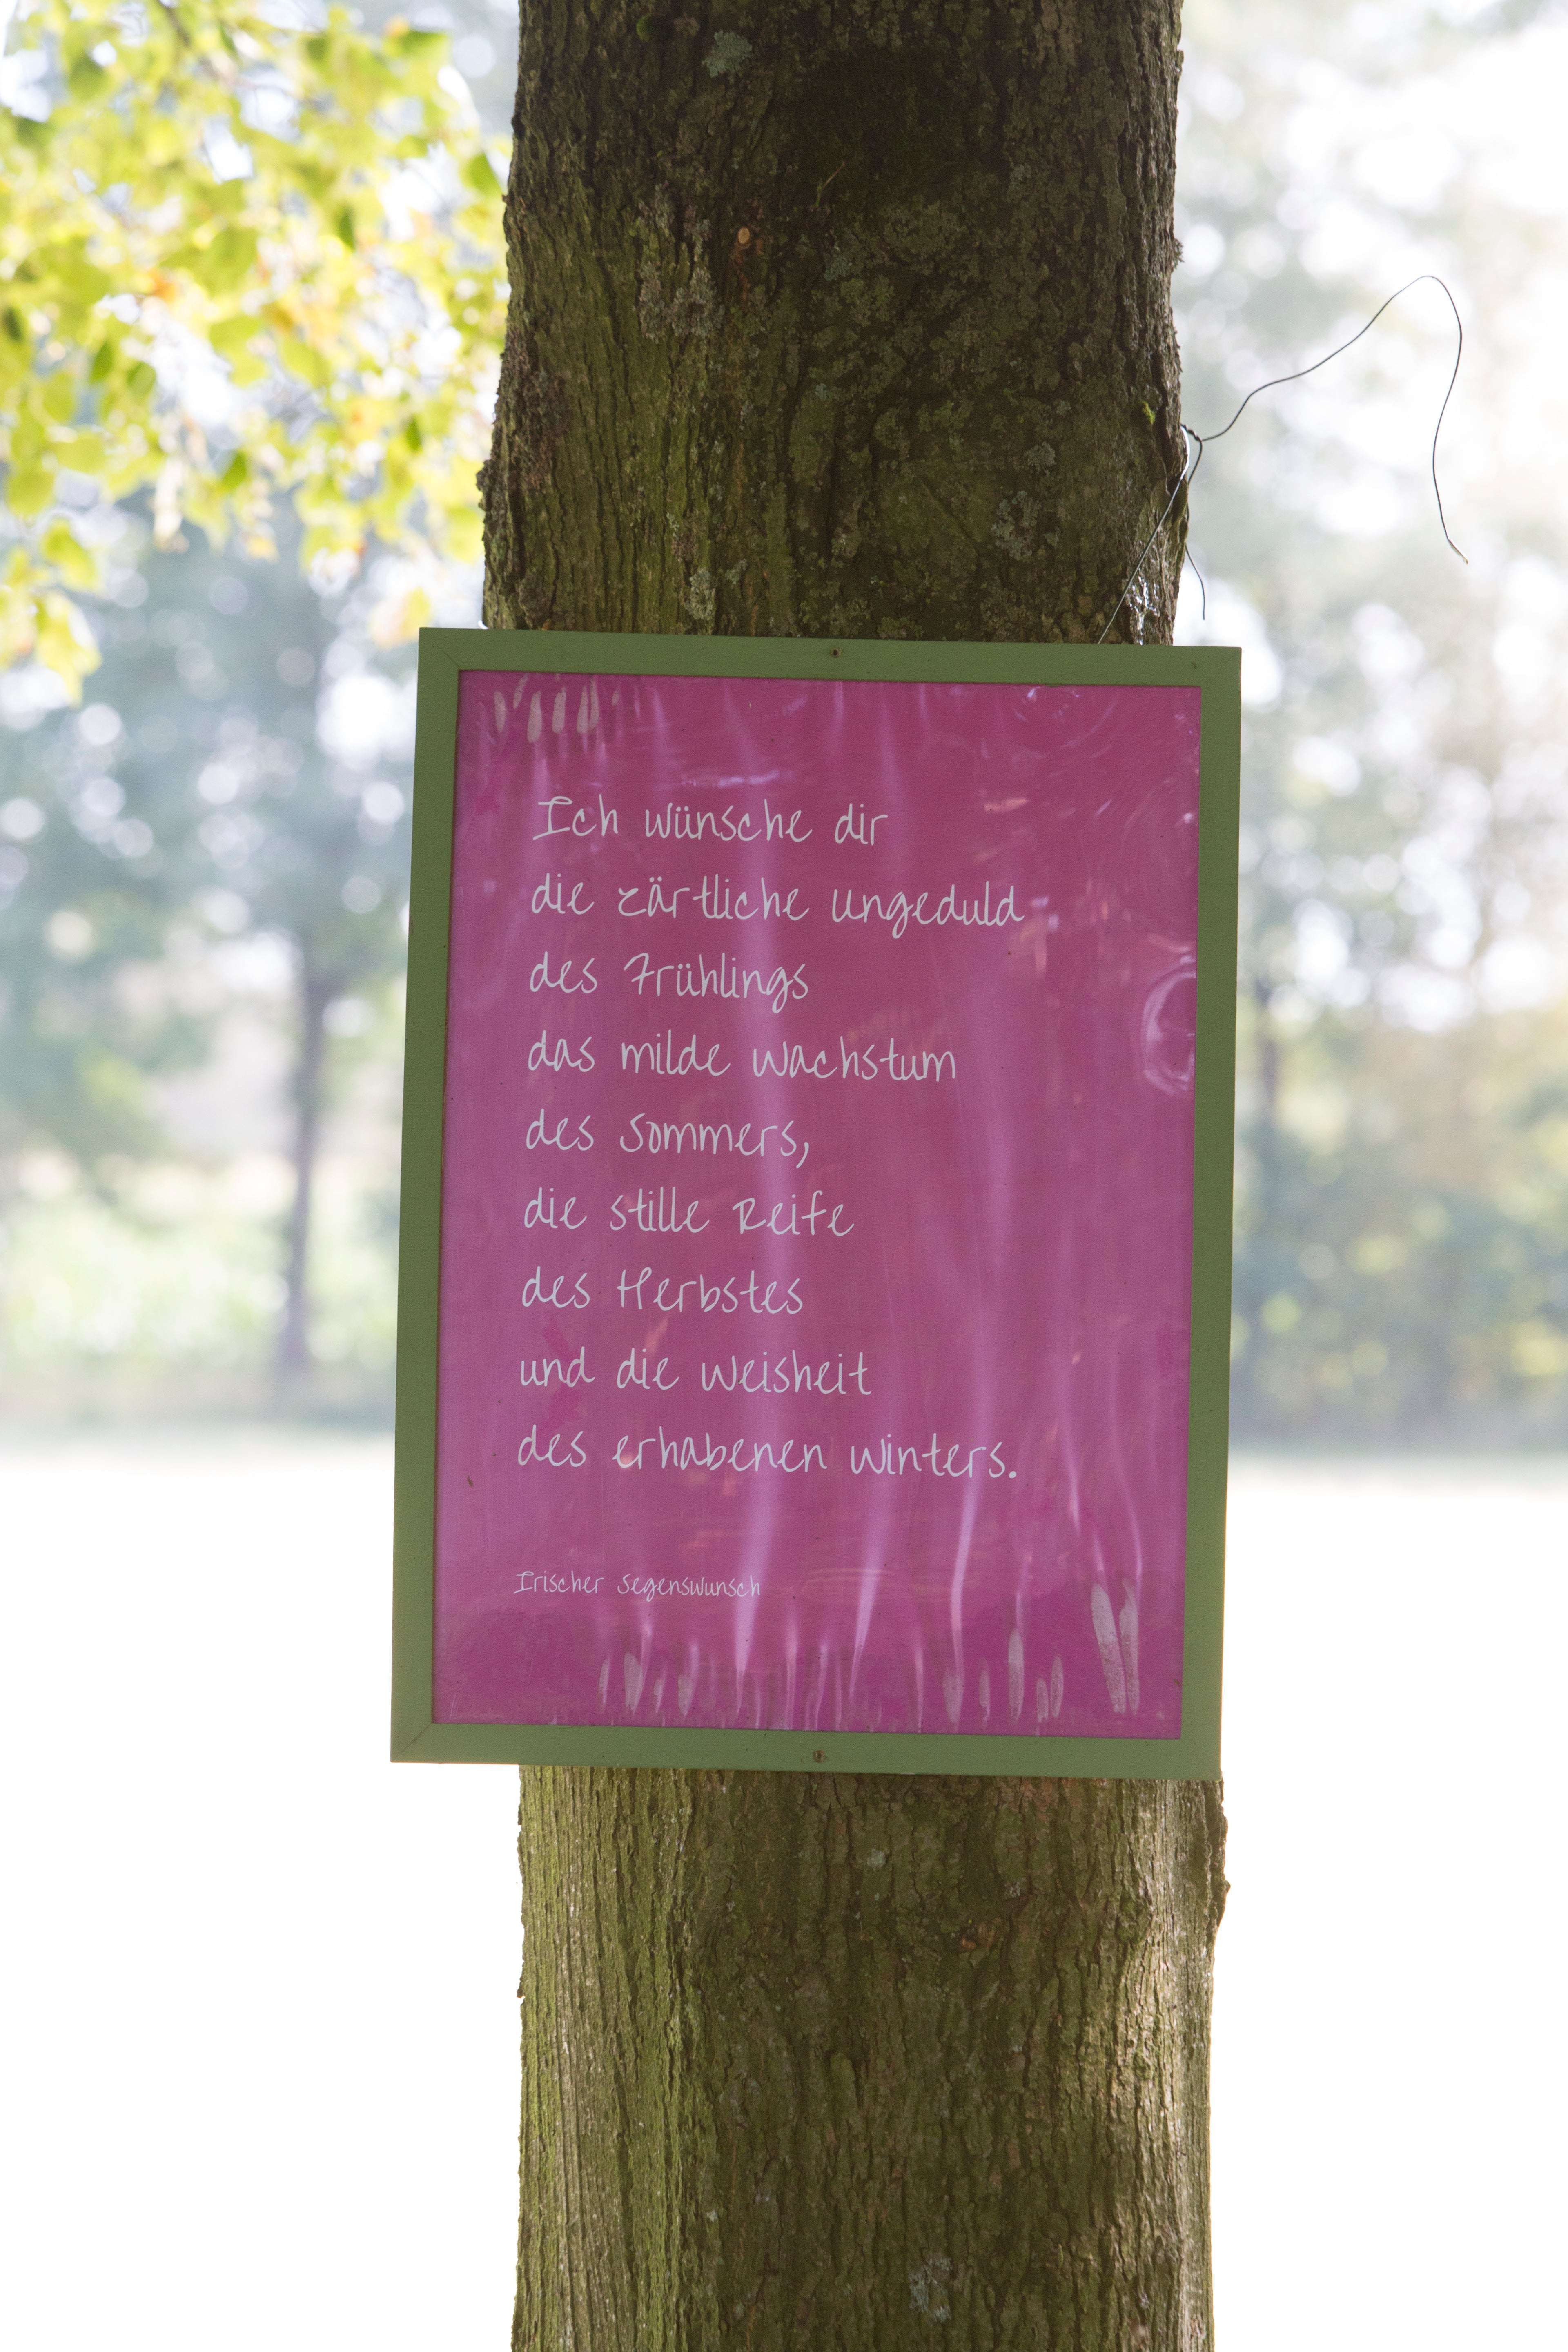 Ich wünsche dir
die zärtliche Ungeduld
des Frühlings
das milde Wachstum
des Sommers,
die stille Reife
des Herbstes
und die Weisheit
des erhabenen Winters.
Irischer Segenswunsch